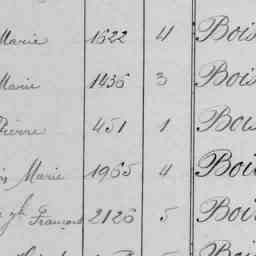 Marie 1622 4 Bois
Marie 1436 3 Bois
Pierre 451 1 Bois
Marie 1965 4 Bois
François 2126 5 Bois